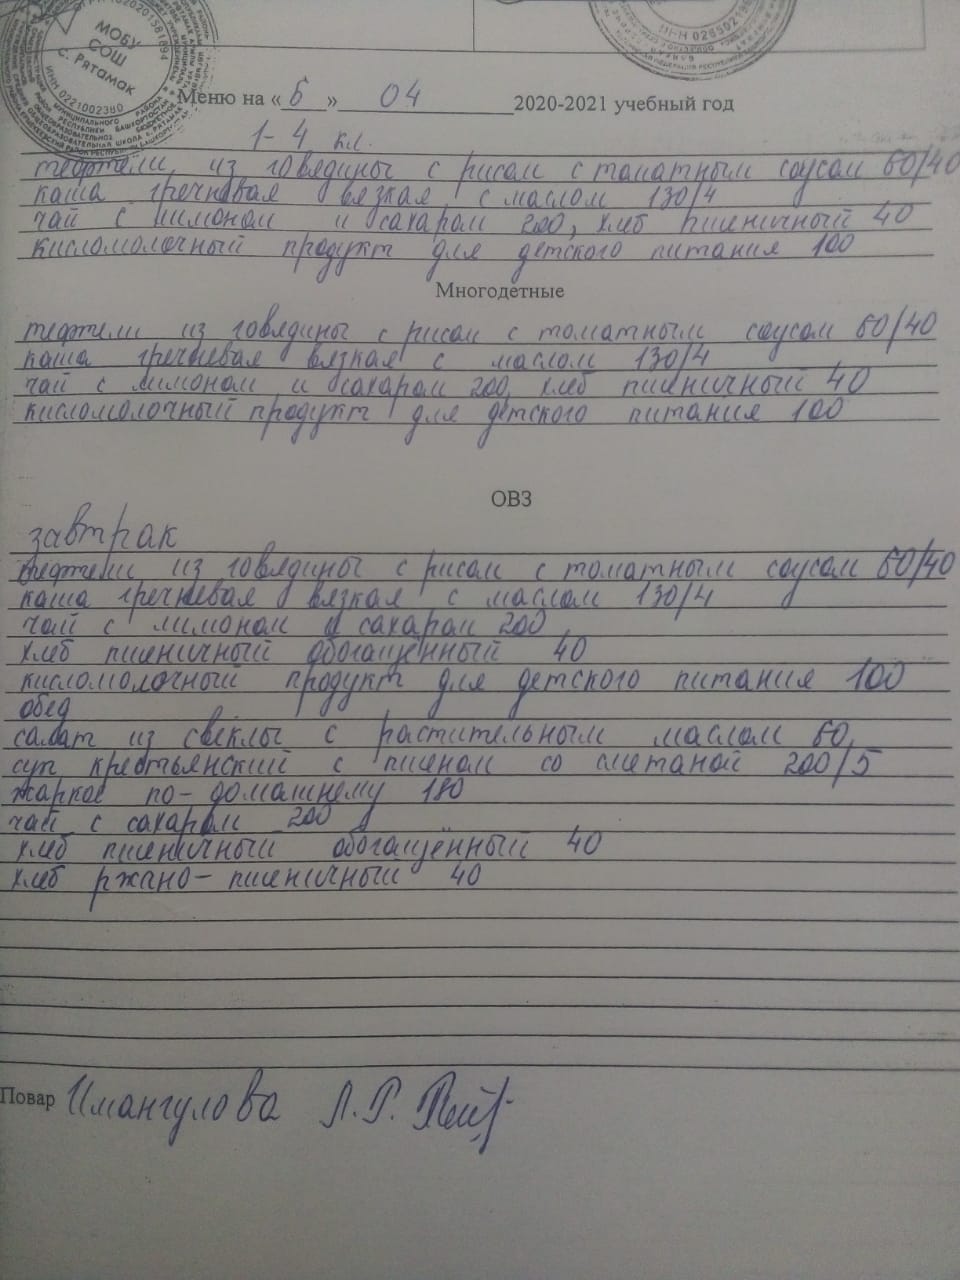 МОБУ
СОШ
с. Рятамак
ИНН 0221002380
Меню на « 6 » 04 2020-2021 учебный год
1-4 кл.
тефтели из говядины с рисом с томатным соусом 60/40
каша гречневая вязкая с маслом 130/4
чай с лимоном и сахаром 200, хлеб пшеничный 40
кисломолочный продукт для детского питания 100
Многодетные
тефтели из говядины с рисом с томатным соусом 60/40
каша гречневая вязкая с маслом 130/4
чай с лимоном и сахаром 200, хлеб пшеничный 40
кисломолочный продукт для детского питания 100
ОВЗ
завтрак
тефтели из говядины с рисом с томатным соусом 60/40
каша гречневая вязкая с маслом 130/4
чай с лимоном и сахаром 200
хлеб пшеничный обогащённый 40
кисломолочный продукт для детского питания 100
обед
салат из свеклы с растительным маслом 60,
суп крестьянский с пшеном со сметаной 200/5
жаркое по-домашнему 180
чай с сахаром 200
хлеб пшеничный обогащённый 40
хлеб ржано-пшеничный 40
Повар Имангулова Л.Р.